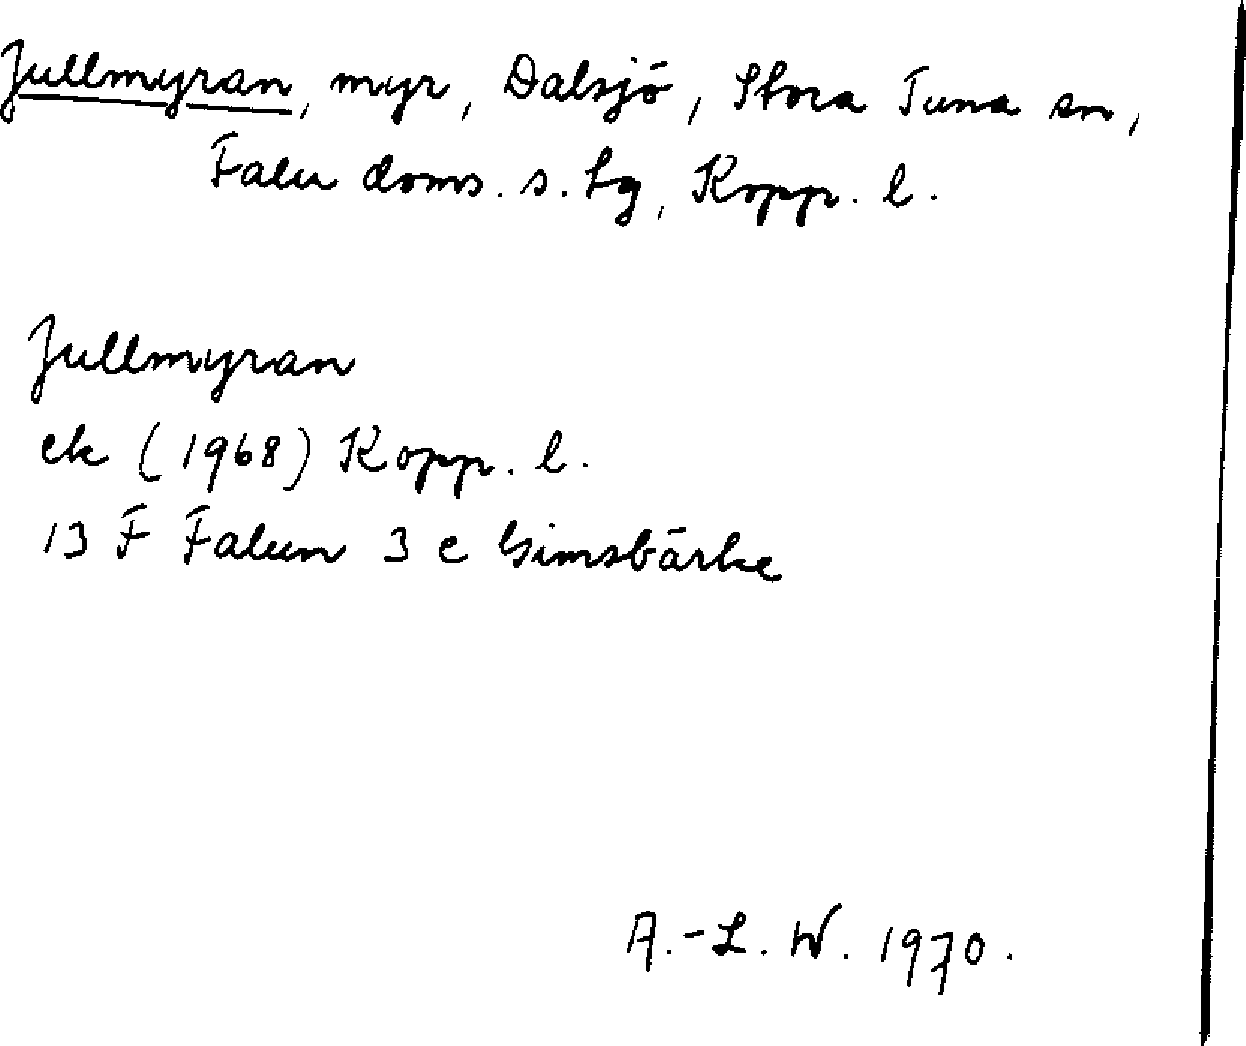 Jullmyran, myr, Dalsjö, Stora Tuna sn,
Falu doms. s. tg, Kopp. l.
Jullmyran
ek (1968) Kopp. l.
13 F Falun 3 e Gimsbärke
A.-L. W. 1970.